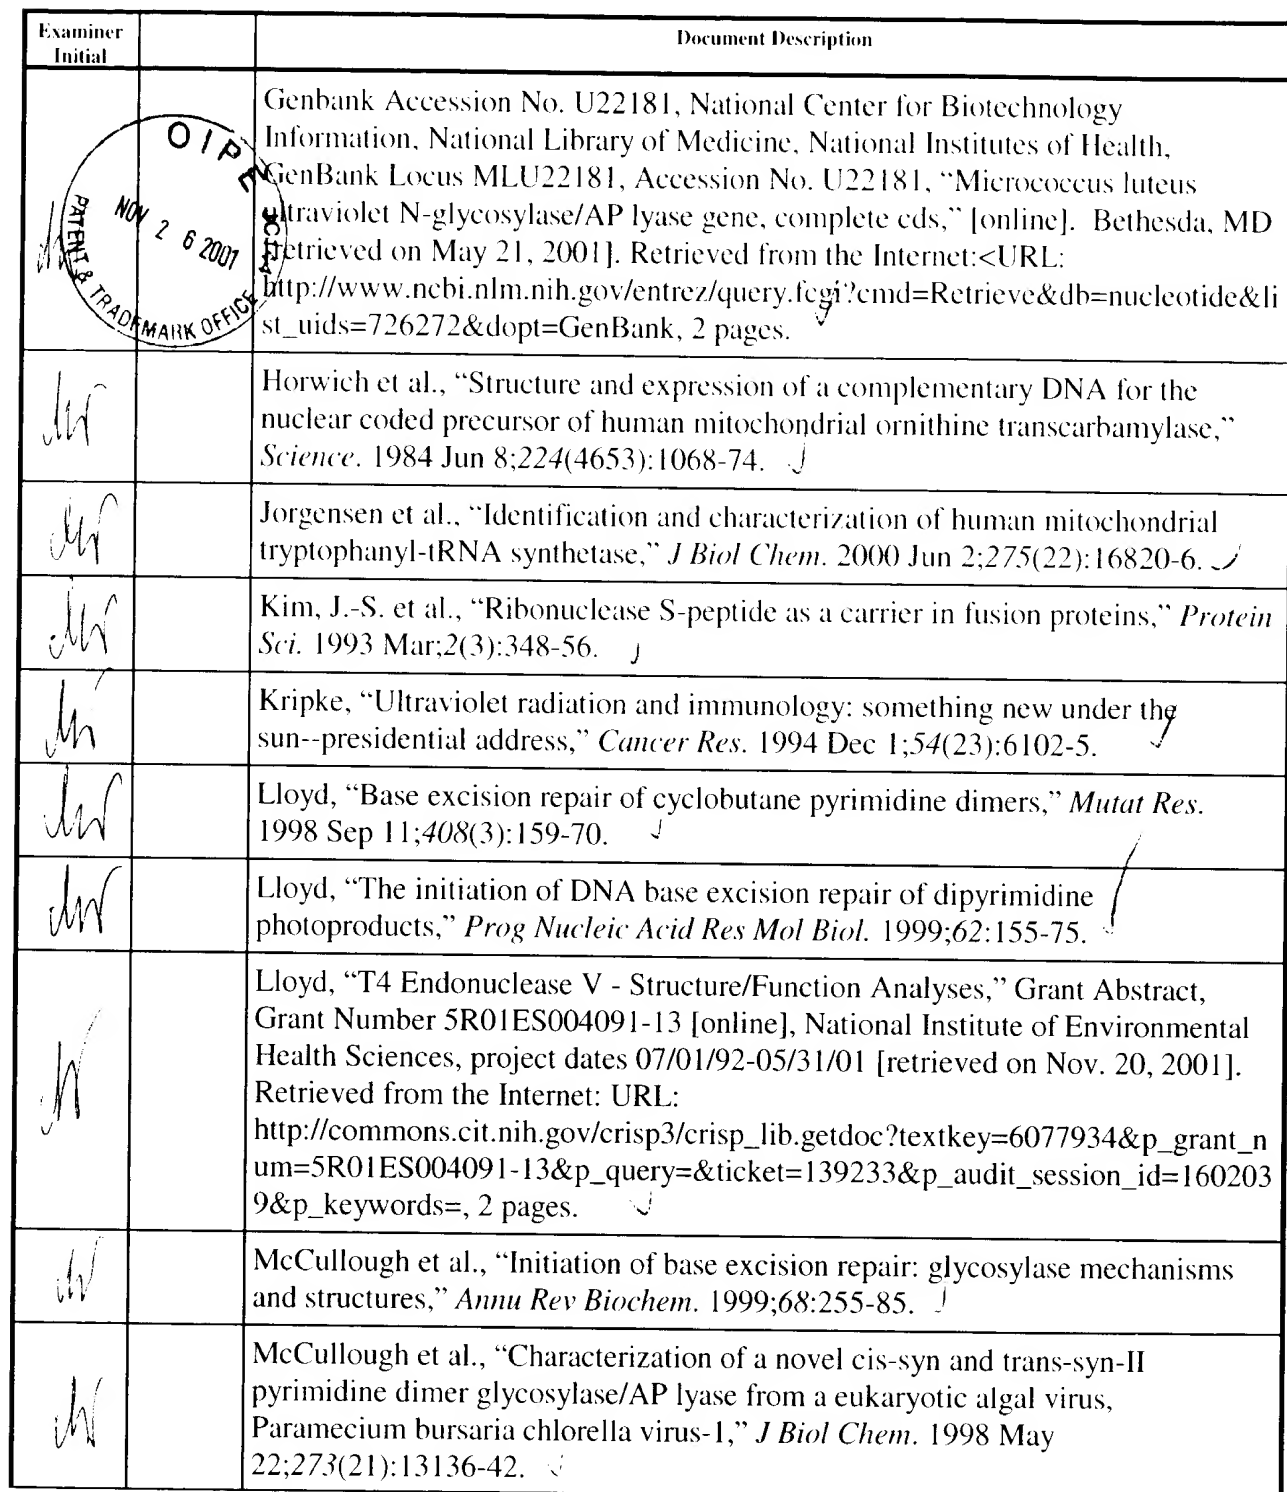 Examiner
Initial
Document Description
Genbank Accession No. U22181, National Center for Biotechnology
Information, National Library of Medicine, National Institutes of Health,
GenBank Locus MLU22181, Accession No. U22181, “Micrococcus luteus
ultraviolet N-glycosylase/AP lyase gene, complete cds,” [online]. Bethesda, MD
[retrieved on May 21, 2001]. Retrieved from the Internet:<URL:
http://www.ncbi.nlm.nih.gov/entrez/query.fcgi?cmd=Retrieve&db=nucleotide&li
st_uids=726272&dopt=GenBank, 2 pages.
OIPE
NOV 26 2001
PATENT & TRADEMARK OFFICE
Horwich et al., “Structure and expression of a complementary DNA for the
nuclear coded precursor of human mitochondrial ornithine transcarbamylase,”
Science. 1984 Jun 8;224(4653):1068-74.
Jorgensen et al., “Identification and characterization of human mitochondrial
tryptophanyl-tRNA synthetase,” J Biol Chem. 2000 Jun 2;275(22):16820-6.
Kim, J.-S. et al., “Ribonuclease S-peptide as a carrier in fusion proteins,” Protein
Sci. 1993 Mar;2(3):348-56.
Kripke, “Ultraviolet radiation and immunology: something new under the
sun--presidential address,” Cancer Res. 1994 Dec 1;54(23):6102-5.
Lloyd, “Base excision repair of cyclobutane pyrimidine dimers,” Mutat Res.
1998 Sep 11;408(3):159-70.
Lloyd, “The initiation of DNA base excision repair of dipyrimidine
photoproducts,” Prog Nucleic Acid Res Mol Biol. 1999;62:155-75.
Lloyd, “T4 Endonuclease V - Structure/Function Analyses,” Grant Abstract,
Grant Number 5R01ES004091-13 [online], National Institute of Environmental
Health Sciences, project dates 07/01/92-05/31/01 [retrieved on Nov. 20, 2001].
Retrieved from the Internet: URL:
http://commons.cit.nih.gov/crisp3/crisp_lib.getdoc?textkey=6077934&p_grant_n
um=5R01ES004091-13&p_query=&ticket=139233&p_audit_session_id=160203
9&p_keywords=, 2 pages.
McCullough et al., “Initiation of base excision repair: glycosylase mechanisms
and structures,” Annu Rev Biochem. 1999;68:255-85.
McCullough et al., “Characterization of a novel cis-syn and trans-syn-II
pyrimidine dimer glycosylase/AP lyase from a eukaryotic algal virus,
Paramecium bursaria chlorella virus-1,” J Biol Chem. 1998 May
22;273(21):13136-42.